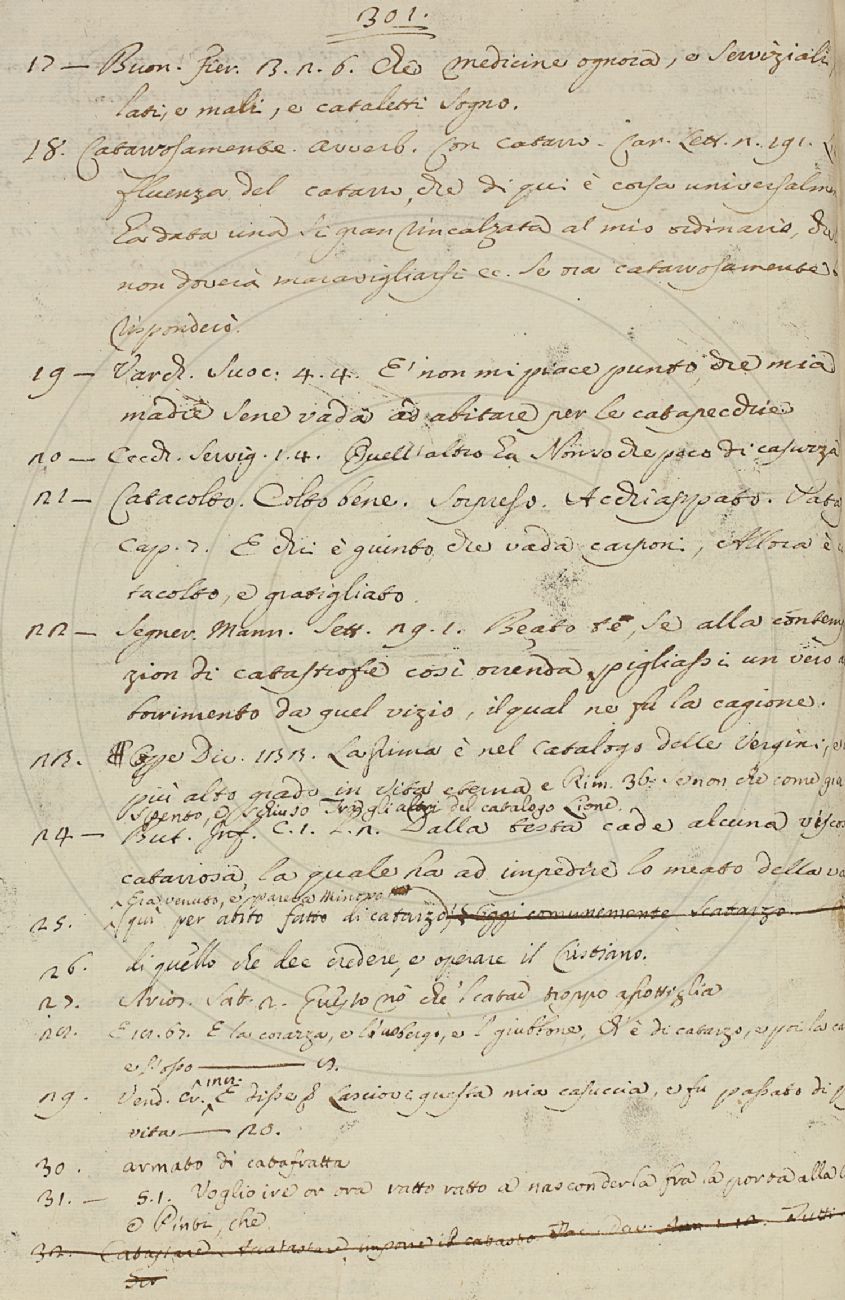 301.
17 — Buon. Fier. 3. 2. 6. Che medicine ognora, e serviziali,
lati, e mali, e cataletti sogno.
18. Catarrosamente. Avverb. Con catarro. Car. Lett. n. 191.
fluenza del catarro, che di qui è corsa universalmen
ha data una sì gran rincalzata al mio ordinario, che
non doverà maravigliarsi ec. se ora catarrosamente
risponderò.
19 — Varch. Suoc. 4. 4. E' non mi piace punto, che mia
madre sene vada ad abitare per le catapecchie
20 — Cecch. Servig. 1. 4. Quell'altro ha Nonso che poco di casuzza
21 — Catacolto. Colto bene. Sorpreso. Acchiappato. Pata
Cap. 7. E chi è giunto, che vada carponi, Allora è
tacolto, e gratigliato.
22 — Segner. Mann. Sett. 29. 1. Beato te, se alla contem
zion di catastrofe così orrenda pigliassi un vero a
borrimento da quel vizio, il qual ne fu la cagione.
23. Div. 133. La prima è nel Catalogo delle Vergini, e
più alto grado in vita eterna e Rim. 36. Se non che come gia
spento, e schiuso Tra gli altri del catalogo Lione.
24 — But. Inf. C. 1. Dalla testa cade alcuna visco
catarrosa, la quale ha ad impedire lo meato della vo
Era venuto, e pareva Minosso
25. qui per abito fatto di catarzo, Oggi comunemente Scatarzo.
26. di quello che dee credere, e operare il Cristiano.
27. Arios. Sat. 2. Questo no che 'l catar troppo assottiglia
28. E la corazza, e l'usbergo, e 'l giubbone, Ch'è di catarzo, e poi la ca
e rosso — 
29. Vend. Cr. E disse Lasciove questa mia casuccia, e fu passato di
vita — 20.
30. armato di catafratta
31. — S. 1. Voglio ire or ora ratto ratto a nasconderla fra la porta alla
e Pinti, che
32. Catastare. Accatastare, imporre il catasto